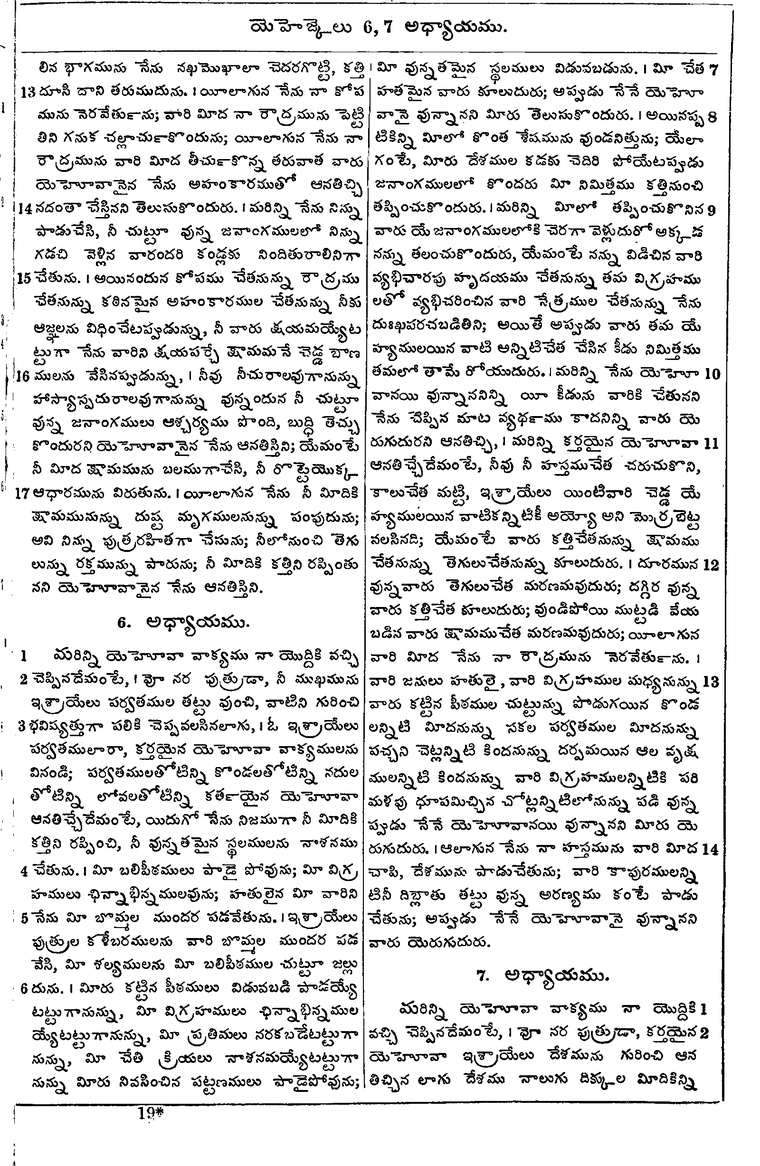 యెహెజ్కెలు 6, 7 అధ్యాయము.
లిన భాగమును నేను నఖముఖాలా చెదరగొట్టి, కత్తి
13 దూసి దాని తరుముదును. । యీలాగున నేను నా కోప
మును నెరవేతుకాను; వారి మీద నా రౌద్రమును పెట్టి
తిని గనుక చల్లాచుకొందును; యీలాగున నేను నా
రౌద్రమును వారి మీద తీచుకొన్న తరువాత వారు
యెహోవానైన నేను అహంకారముతో ఆనతిచ్చి
14 నదంతా చేస్తినని తెలుసుకొందురు. । మరిన్ని నేను నిన్ను
పాడుచేసి, నీ చుట్టూ వున్న జనాంగములలో నిన్ను
గడచి వెళ్లిన వారందరి కండ్లకు నిందితురాలినిగా
15 చేతును. । అయినందున కోపము చేతనున్న రౌద్రము
చేతనున్న కఠినమైన అహంకారముల చేతనున్న నీకు
ఆజ్ఞలను విధించేటప్పుడున్ను, నీ వారు క్షయమయ్యేట
ట్టుగా నేను వారిని క్షయపర్చే క్షామమనే చెడ్డ బాణ
16 ములను వేసినప్పుడున్ను, । నీవు నీచురాలవుగానున్ను
హాస్యాస్పదురాలవుగానున్ను వున్నందున నీ చుట్టూ
వున్న జనాంగములు ఆశ్చర్యము పొంది, బుద్ధి తెచ్చు
కొందురని యెహోవానైన నేను ఆనతిస్తిని; యేమంటే
నీ మీద క్షామమును బలముగాచేసి, నీ రొట్టెయొక్క
17 ఆధారమును విరుతును. । యీలాగున నేను నీ మీదికి
క్షామమునున్ను దుష్ట మృగములనున్ను పంపుదును;
అవి నిన్ను పుత్రరహితగా చేసును; నీలోనుంచి తెగు
లున్ను రక్తమున్ను పారును; నీ మీదికి కత్తిని రప్పింతు
నని యెహోవానైన నేను ఆనతిస్తిని.
6. అధ్యాయము.
1 మరిన్ని యెహోవా వాక్యము నా యొద్దికి వచ్చి
2 చెప్పినదేమంటే, । వూ నర పుత్రుడా, నీ ముఖమును
ఇశ్రాయేలు పర్వతముల తట్టు వుంచి, వాటిని గురించి
3 భవిష్యత్తుగా పలికి చెప్పవలసినలాగు, । ఓ ఇశ్రాయేలు
పర్వతములారా, కర్తయైన యెహోవా వాక్యములను
వినండి; పర్వతములతోటిన్ని కొండలతోటిన్ని నదుల
తోటిన్ని లోవలతోటిన్ని కతకాయైన యెహోవా
ఆనతిచ్చేదేమంటే, యిదుగో నేను నిజముగా నీ మీదికి
కత్తిని రప్పించి, నీ వున్నతమైన స్థలములను నాశనము
4 చేతును. । మీ బలిపీఠములు పాడై పోవును; మీ విగ్ర
హములు ఛిన్నాభిన్నములవును; హతులైన మీ వారిని
5 నేను మీ బొమ్మల ముందర పడవేతును. । ఇశ్రాయేలు
పుత్రుల కళేబరములను వారి బొమ్మల ముందర పడ
వేసి, మీ శల్యములను మీ బలిపీఠముల చుట్టూ జల్లు
6 దును. । మీరు కట్టిన పీఠములు విడువబడి పాడయ్యే
టట్టుగానున్ను, మీ విగ్రహములు ఛిన్నాభిన్నములు
య్యేటట్టుగానున్ను, మీ ప్రతిమలు నరకబడేటట్టుగా
నున్ను, మీ చేతి క్రియలు నాశనమయ్యేటట్టుగా
నున్ను మీరు నివసించిన పట్టణములు పాడైపోవును;
మీ వున్నతమైన స్థలములు విడువబడును. । మీ చేత 7
హతమైన వారు కూలుదురు; అప్పుడు నేనే యెహో
వానై వున్నానని మీరు తెలుసుకొందురు. । అయినప్ప 8
టికిన్ని మీలో కొంత శేషమును వుండనిత్తును; యేలా
గంటే, మీరు దేశముల కడకు చెదిరి పోయేటప్పుడు
జనాంగములలో కొందరు మీ నిమిత్తము కత్తినుంచి
తప్పించుకొందురు. । మరిన్ని మీలో తప్పించుకొనిన 9
వారు యే జనాంగములలోకి చెరగా వెళ్లుదురో అక్కడ
నన్ను తలంచుకొందురు, యేమంటే నన్ను విడిచిన వారి
వ్యభిచారపు హృదయము చేతనున్ను తమ విగ్రహము
లతో వ్యభిచరించిన వారి నేత్రముల చేతనున్ను నేను
దుఃఖపరచబడితిని; అయితే అప్పుడు వారు తమ యే
హ్యములయిన వాటి అన్నిటిచేత చేసిన కీడు నిమిత్తము
తమలో తామే రోయుదురు. । మరిన్ని నేను యెహో 10
వానయి వున్నాననిన్ని యీ కీడును వారికి చేతునని
నేను చెప్పిన మాట వ్యథకాము కాదనిన్ని వారు యె
రుగుదురని ఆనతిచ్చి, । మరిన్ని కర్తయైన యెహోవా 11
ఆనతిచ్చేదేమంటే, నీవు నీ హస్తముచేత చరుచుకొని,
కాలుచేత మట్టి, ఇశ్రాయేలు యింటివారి చెడ్డ యే
హ్యములయిన వాటికన్నిటికీ అయ్యో అని మొర్రబెట్ట
వలసినది; యేమంటే వారు కత్తిచేతనున్ను క్షామము
చేతనున్ను తెగులుచేతనున్ను కూలుదురు. । దూరమున 12
వున్నవారు తెగులుచేత మరణమవుదురు; దగ్గిర వున్న
వారు కత్తిచేత కూలుదురు; వుండిపోయి ముట్టడి వేయ
బడిన వారు క్షామముచేత మరణమవుదురు; యీలాగున
వారి మీద నేను నా రౌద్రమును నెరవేతుకాను. ।
వారి జనులు హతులై, వారి విగ్రహముల మధ్యనున్ను 13
వారు కట్టిన పీఠముల చుట్టున్ను పోడుగయిన కొండ
లన్నిటి మీదనున్ను సకల పర్వతముల మీదనున్ను
పచ్చని చెట్లన్నిటి కిందనున్ను దర్పమయిన ఆల వృక్ష
ములన్నిటి కిందనున్ను వారి విగ్రహములన్నిటికి పరి
మళపు ధూపమిచ్చిన చోట్లన్నిటిలోనున్ను పడి వున్న
ప్పుడు నేనే యెహోవానయి వున్నానని మీరు యె
రుగుదురు. । ఆలాగున నేను నా హస్తమును వారి మీద 14
చాపి, దేశమును పాడుచేతును; వారి కాపురములన్ని
టినీ దిబ్లాతు తట్టు వున్న అరణ్యము కంటే పాడు
చేతును; అప్పుడు నేనే యెహోవానై వున్నానని
వారు యెరుగుదురు.
7. అధ్యాయము.
మరిన్ని యెహోవా వాక్యము నా యొద్దికి 1
వచ్చి చెప్పినదేమంటే, । వూ నర పుత్రుడా, కర్తయైన 2
యెహోవా ఇశ్రాయేలు దేశమును గురించి ఆన
తిచ్చిన లాగు దేశము నాలుగు దిక్కుల మీదికిన్ని
19*